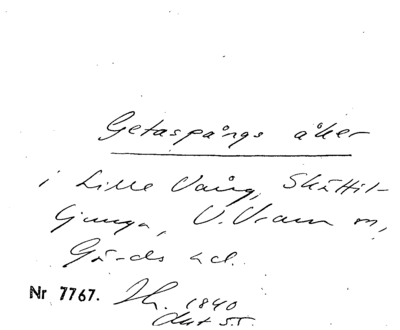 Getaspångs åker
i Lille Vång, Skättil-
ljunga, V. Vram sn,
Gärds hd.
Nr 7767. Lh. 1840
akt 55